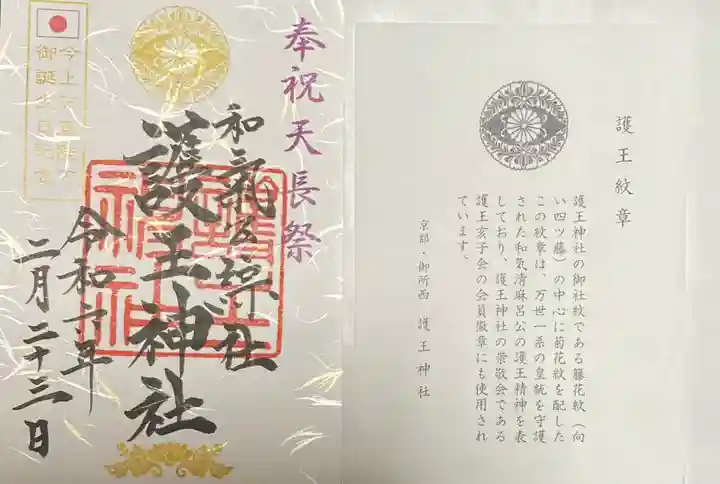 護王紋章
護王神社の御社紋である藤花紋（向
い四ツ藤）の中心に菊花紋を配した
この紋章は、万世一系の皇統を守護
された和氣清麻呂公の護王精神を表
しており、護王神社の崇敬会である
護王亥子会の会員徽章にも使用され
ています。
京都・御所西　護王神社
奉祝天長祭
和氣公綜社
護王神社
令和 年
二月二十三日
今上天皇陛下
御誕生日記念